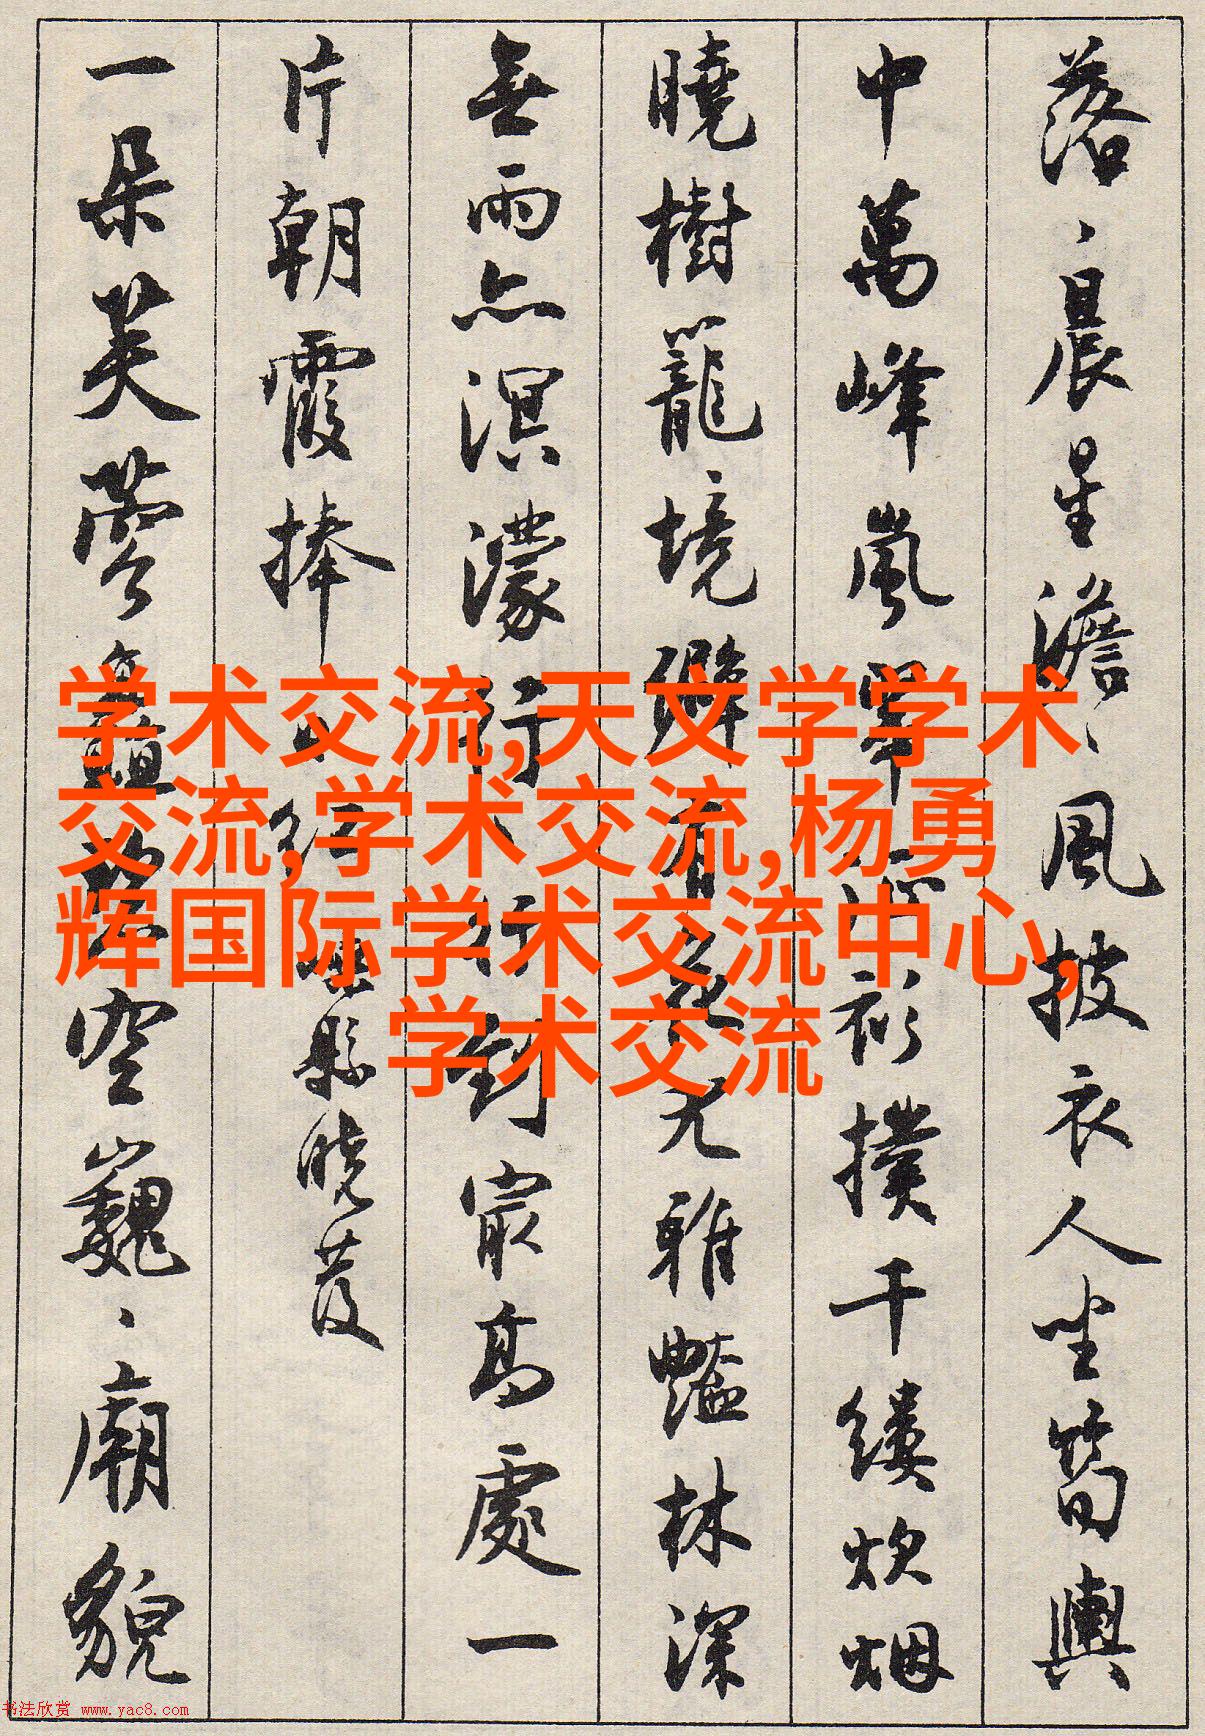 落、晨星澹、風披衣人坐筍輿
中萬峰嵐翠 衫撲千縷炊烟
曉樹籠境僻有花尤雅豔林深
無雨亦溟濛行、 對最高處一
片朝霞捧
縣曉發
一朵芙蓉 空巍、廟貌
学术交流,天文学学术
交流,学术交流,杨勇
辉国际学术交流中心,
学术交流
书法欣赏 www.yac8.com